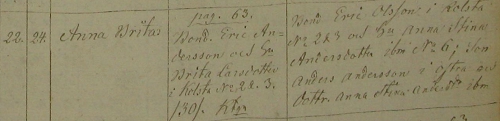 pag. 63.
22. 24. Anna Britas
Bond. Eric An-
dersson och Hu
Brita Larsdotter
i Kolsta No 2 & 3.
/30/. Ktgn
Bond. Eric Olsson i Kolsta
No 2 & 3 och Hu Anna Stina
Andersdotter ibm No 6; Son
Anders Andersson i och
Dottr. Anna Stina Andersdr ibm